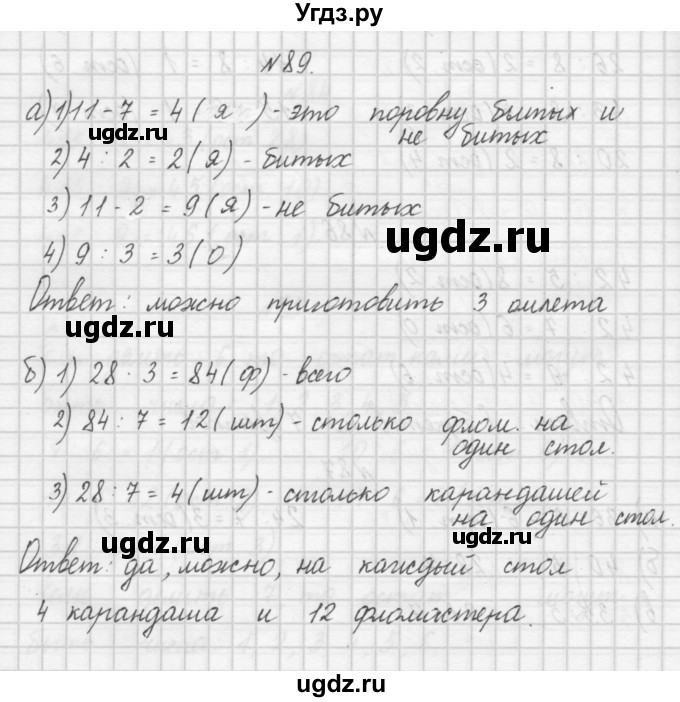 Угдз.ру
№ 89.
а) 1) 11 - 7 = 4 ( я ) - это поровну битых и
не битых
ugdz.ru
2) 4 : 2 = 2 ( я ) - битых
3) 11 - 2 = 9 ( я ) - не битых
ugdz.ru
4) 9 : 3 = 3 ( О )
Ответ: можно приготовить 3 омлета
ugdz.ru
б) 1) 28 · 3 = 84 ( ф ) - всего
2) 84 : 7 = 12 ( шт ) - столько флом. на
один стол.
ugdz.ru
3) 28 : 7 = 4 ( шт ) - столько карандашей
на один стол.
ugdz.ru
ugdz.ru
Ответ: да, можно, на каждый стол
4 карандаша и 12 фломастера.
ugdz.ru
ugdz.ru